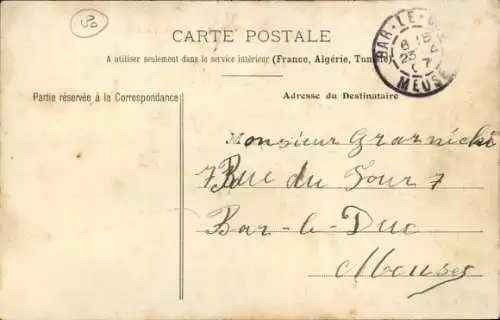 CARTE POSTALE
A utiliser seulement dans le service intérieur (France, Algérie, Tunisie)
Partie réservée à la Correspondance
Adresse du Destinataire
BAR-LE-DUC
23
MEUSE
Monsieur
7 Rue du Four 7
Bar-le-Duc
Meuse